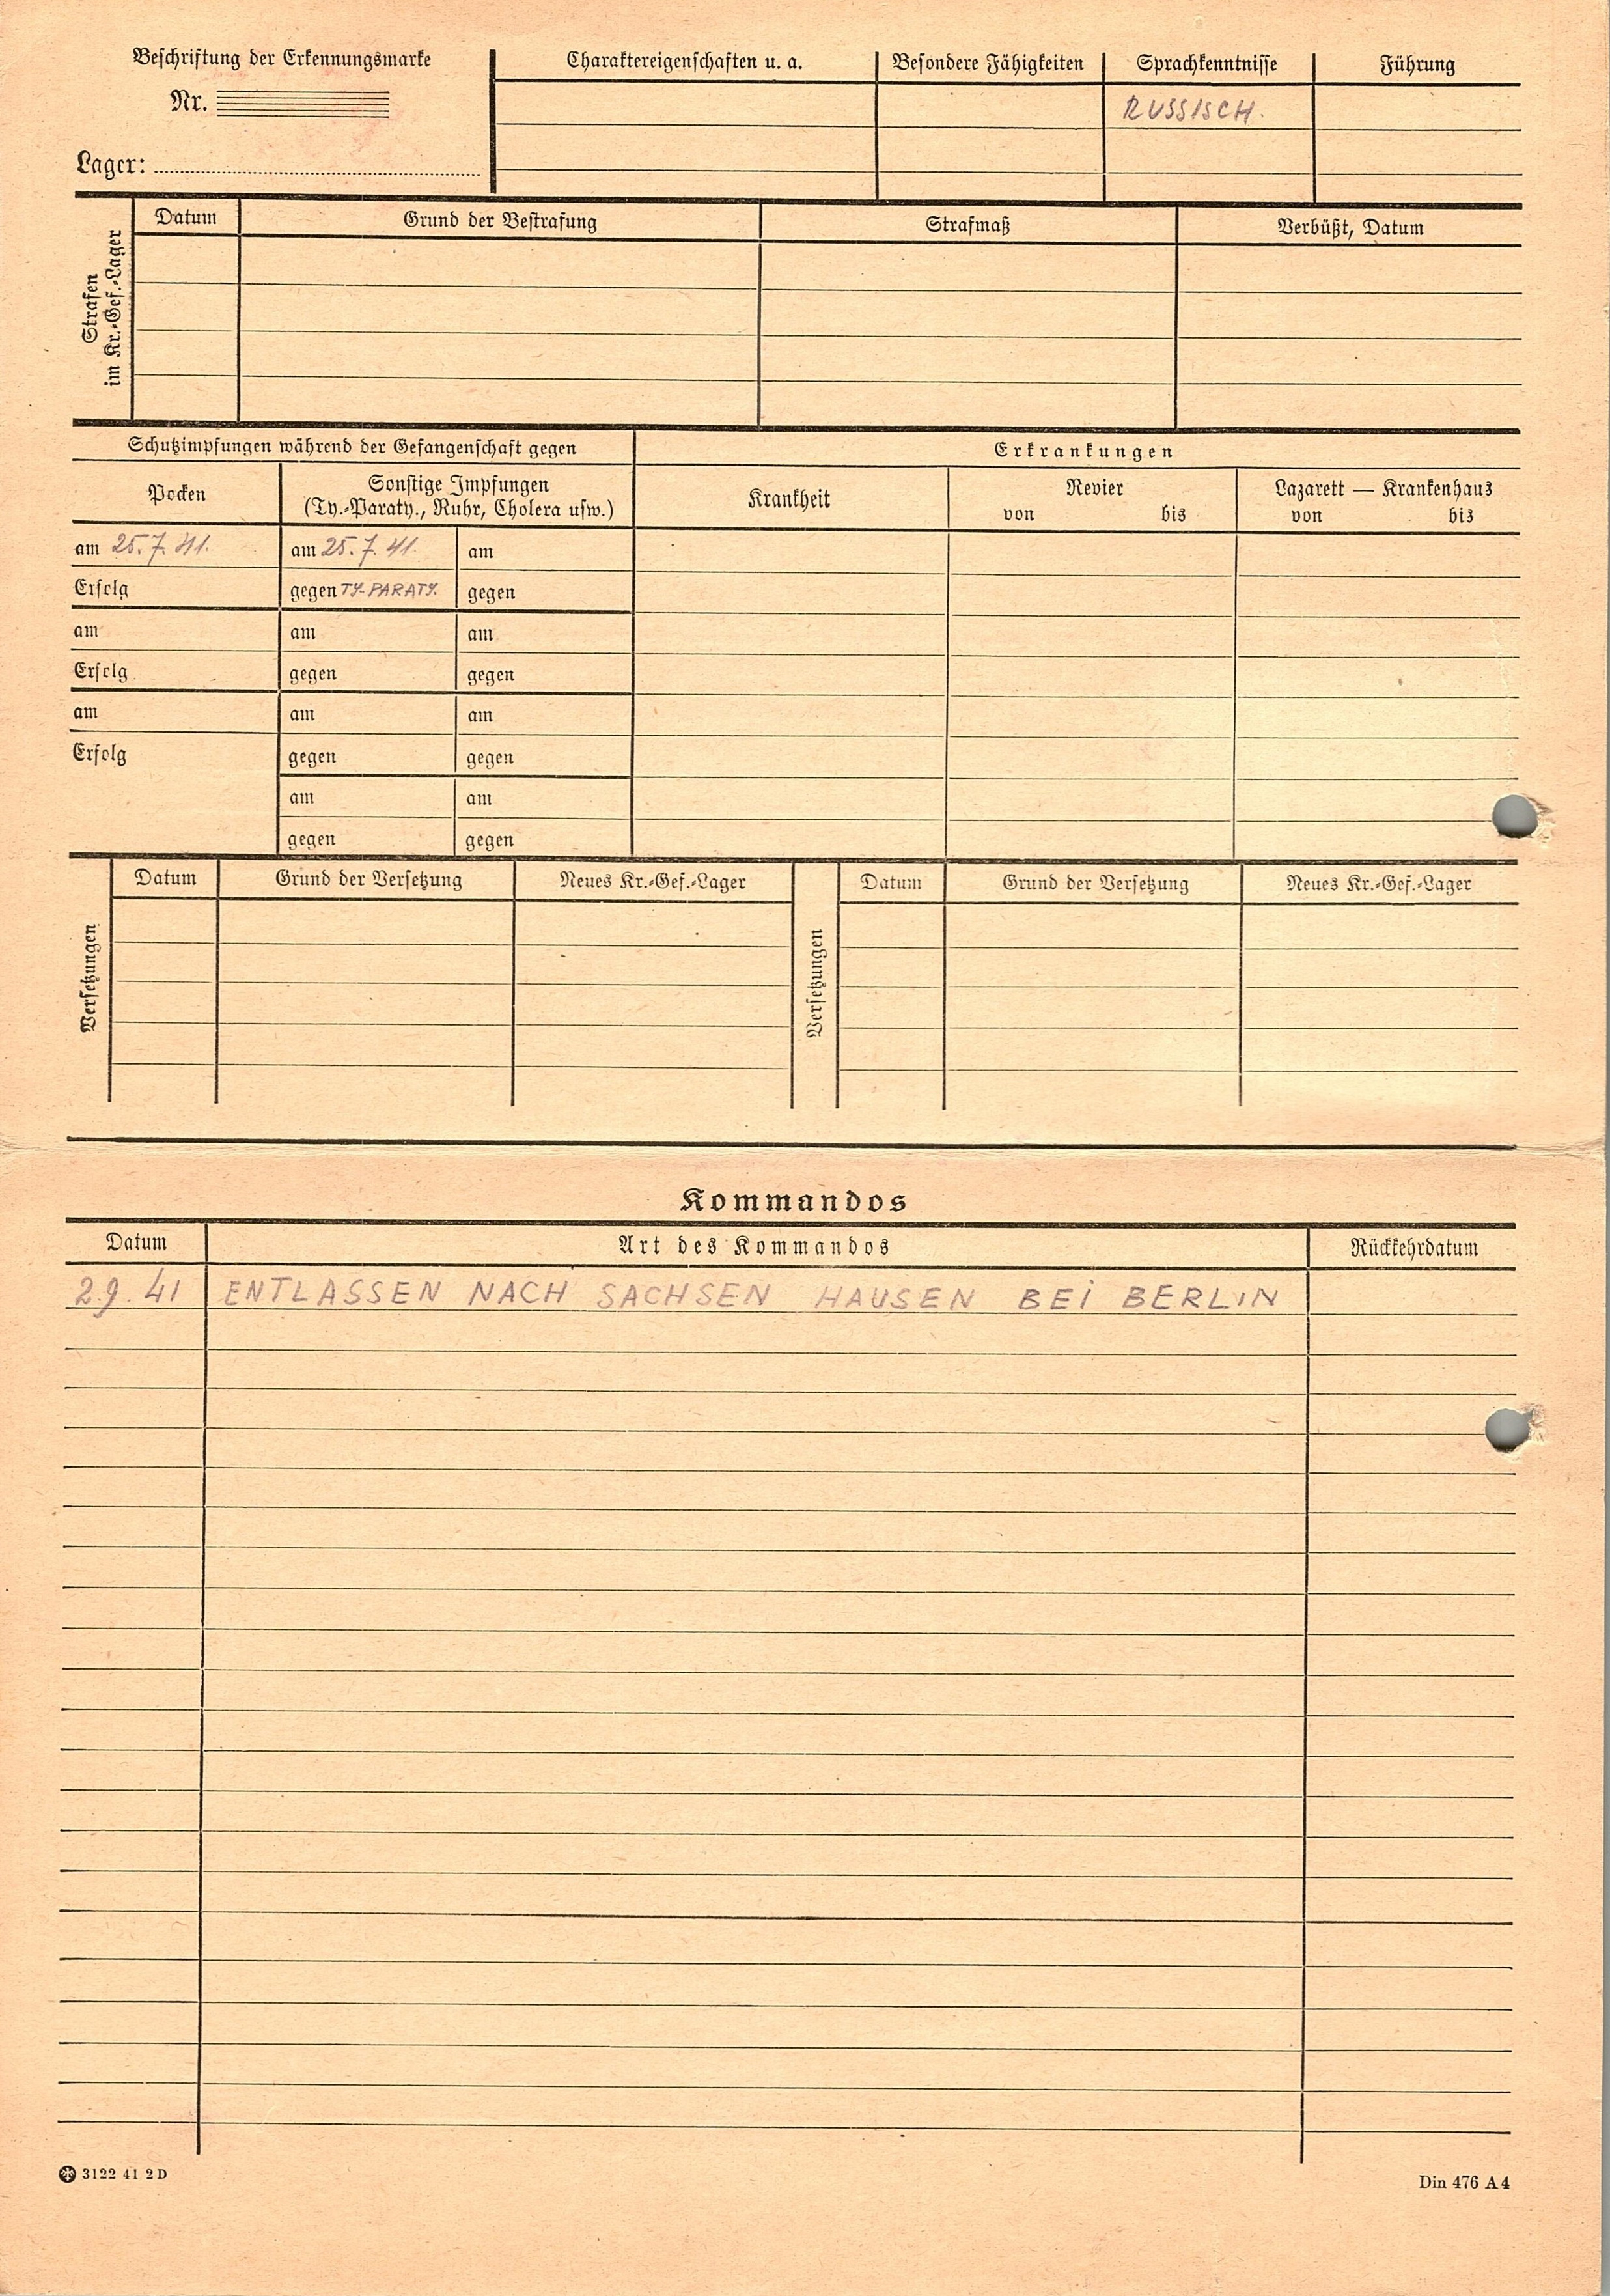 Beschriftung der Erkennungsmarke
Nr.
Lager:
Charaktereigenschaften u. a. Besondere Fähigkeiten Sprachkenntnisse Führung
RUSSISCH.
Strafen
im Kr.-Gef.-Lager
Datum Grund der Bestrafung Strafmaß Verbüßt, Datum
Schutzimpfungen während der Gefangenschaft gegen Erkrankungen
Pocken
Sonstige Impfungen
(Ty.-Paraty., Ruhr, Cholera usw.)
Krankheit
Revier
von bis
Lazarett — Krankenhaus
von bis
am 25.7.41. am 25.7.41. am
Erfolg gegen TY-PARATY. gegen
am am am
Erfolg gegen gegen
am am am
Erfolg gegen gegen
am am
gegen gegen
Versetzungen
Datum Grund der Versetzung Neues Kr.-Gef.-Lager
Versetzungen
Datum Grund der Versetzung Neues Kr.-Gef.-Lager
Kommandos
Datum Art des Kommandos Rückkehrdatum
2.9.41 ENTLASSEN NACH SACHSEN HAUSEN BEI BERLIN
3122 41 2 D
Din 476 A 4